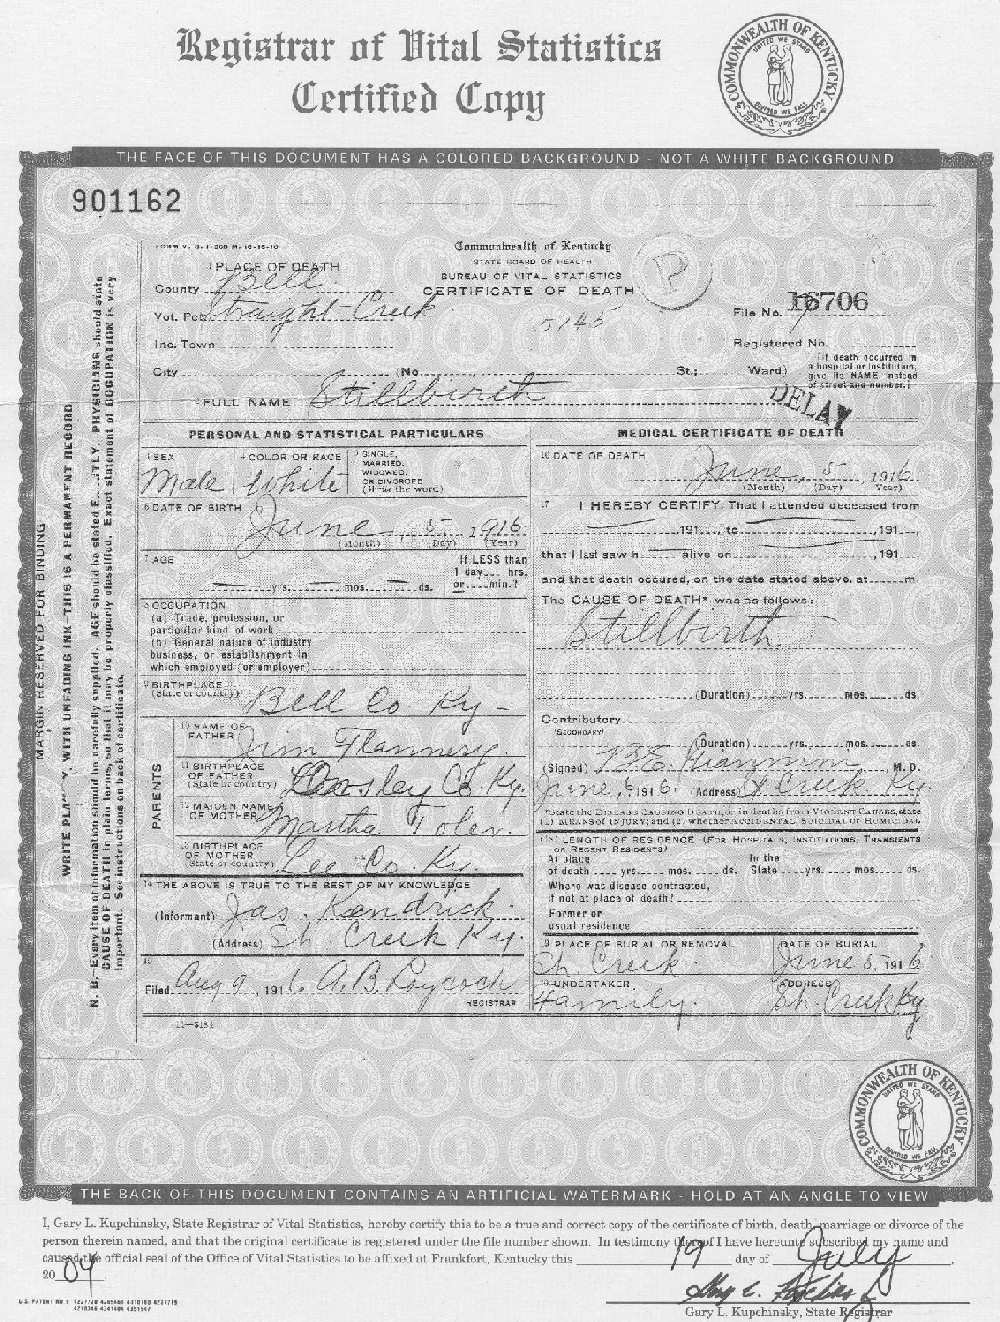 Registrar of Vital Statistics
Certified Copy
COMMONWEALTH OF KENTUCKY
UNITED WE STAND
DIVIDED WE FALL
THE FACE OF THIS DOCUMENT HAS A COLORED BACKGROUND - NOT A WHITE BACKGROUND
901162
Commonwealth of Kentucky
STATE BOARD OF HEALTH
BUREAU OF VITAL STATISTICS
CERTIFICATE OF DEATH
1 PLACE OF DEATH
County Bell
Vot. Pct. Straight Creek
5145
File No. 16706
Inc. Town
Registered No.
City (No. St.; Ward)
(If death occurred in
a hospital or institution,
give its NAME instead
of street and number.)
2 FULL NAME Stillbirth
DELAY
PERSONAL AND STATISTICAL PARTICULARS
3 SEX Male
4 COLOR OR RACE White
5 SINGLE,
MARRIED,
WIDOWED,
OR DIVORCED
(Write the word)
6 DATE OF BIRTH
June 5 1916
(Month) (Day) (Year)
7 AGE
If LESS than
1 day hrs.
or min.?
yrs. mos. ds.
8 OCCUPATION
(a) Trade, profession, or
particular kind of work
(b) General nature of industry
business, or establishment in
which employed (or employer)
9 BIRTHPLACE
(State or country)
Bell Co Ky -
PARENTS
10 NAME OF
FATHER Jim Flannery.
11 BIRTHPLACE
OF FATHER
(State or country) Owsley Co Ky.
12 MAIDEN NAME
OF MOTHER Martha Toler.
13 BIRTHPLACE
OF MOTHER
(State or country) Lee Co. Ky.
14 THE ABOVE IS TRUE TO THE BEST OF MY KNOWLEDGE
(Informant) Jas. Kendrick
(Address) St. Creek Ky.
15
Filed Aug 9, 1916 A.B.
REGISTRAR
11—3151
MEDICAL CERTIFICATE OF DEATH
16 DATE OF DEATH
June 5, 1916
(Month) (Day) (Year)
17 I HEREBY CERTIFY, That I attended deceased from
191 , to , 191
that I last saw h alive on , 191
and that death occured, on the date stated above, at m.
The CAUSE OF DEATH* was as follows:
Stillbirth
(Duration) yrs. mos. ds.
Contributory
(SECONDARY)
(Duration) yrs. mos. ds.
(Signed) M. D.
June 6 1916. (Address) St Creek Ky.
*State the Disease Causing Death, or, in deaths from Violent Causes, state
(1) MEANS OF INJURY; and (2) whether ACCIDENTAL, SUICIDAL OR HOMICIDAL
18 LENGTH OF RESIDENCE (For Hospitals, Institutions, Transients
or Recent Residents)
At place In the
of death yrs. mos. ds. State yrs. mos. ds.
Where was disease contracted,
if not at place of death?
Former or
usual residence
19 PLACE OF BURIAL OR REMOVAL DATE OF BURIAL
St. Creek June 5, 1916
20 UNDERTAKER ADDRESS
Family. St. Creek Ky
MARGIN RESERVED FOR BINDING
WRITE PLAINLY, WITH UNFADING INK—THIS IS A PERMANENT RECORD
N. B.—Every item of information should be carefully supplied. AGE should be stated EXACTLY. PHYSICIANS should state
CAUSE OF DEATH in plain terms, so that it may be properly classified. Exact statement of OCCUPATION is very
important. See instructions on back of certificate.
COMMONWEALTH OF KENTUCKY
UNITED WE STAND
DIVIDED WE FALL
THE BACK OF THIS DOCUMENT CONTAINS AN ARTIFICIAL WATERMARK - HOLD AT AN ANGLE TO VIEW
I, Gary L. Kupchinsky, State Registrar of Vital Statistics, hereby certify this to be a true and correct copy of the certificate of birth, death, marriage or divorce of the
person therein named, and that the original certificate is registered under the file number shown. In testimony thereof I have hereunto subscribed my name and
caused the official seal of the Office of Vital Statistics to be affixed at Frankfort, Kentucky this 19 day of July,
20 04.
Gary L. Kupchinsky, State Registrar